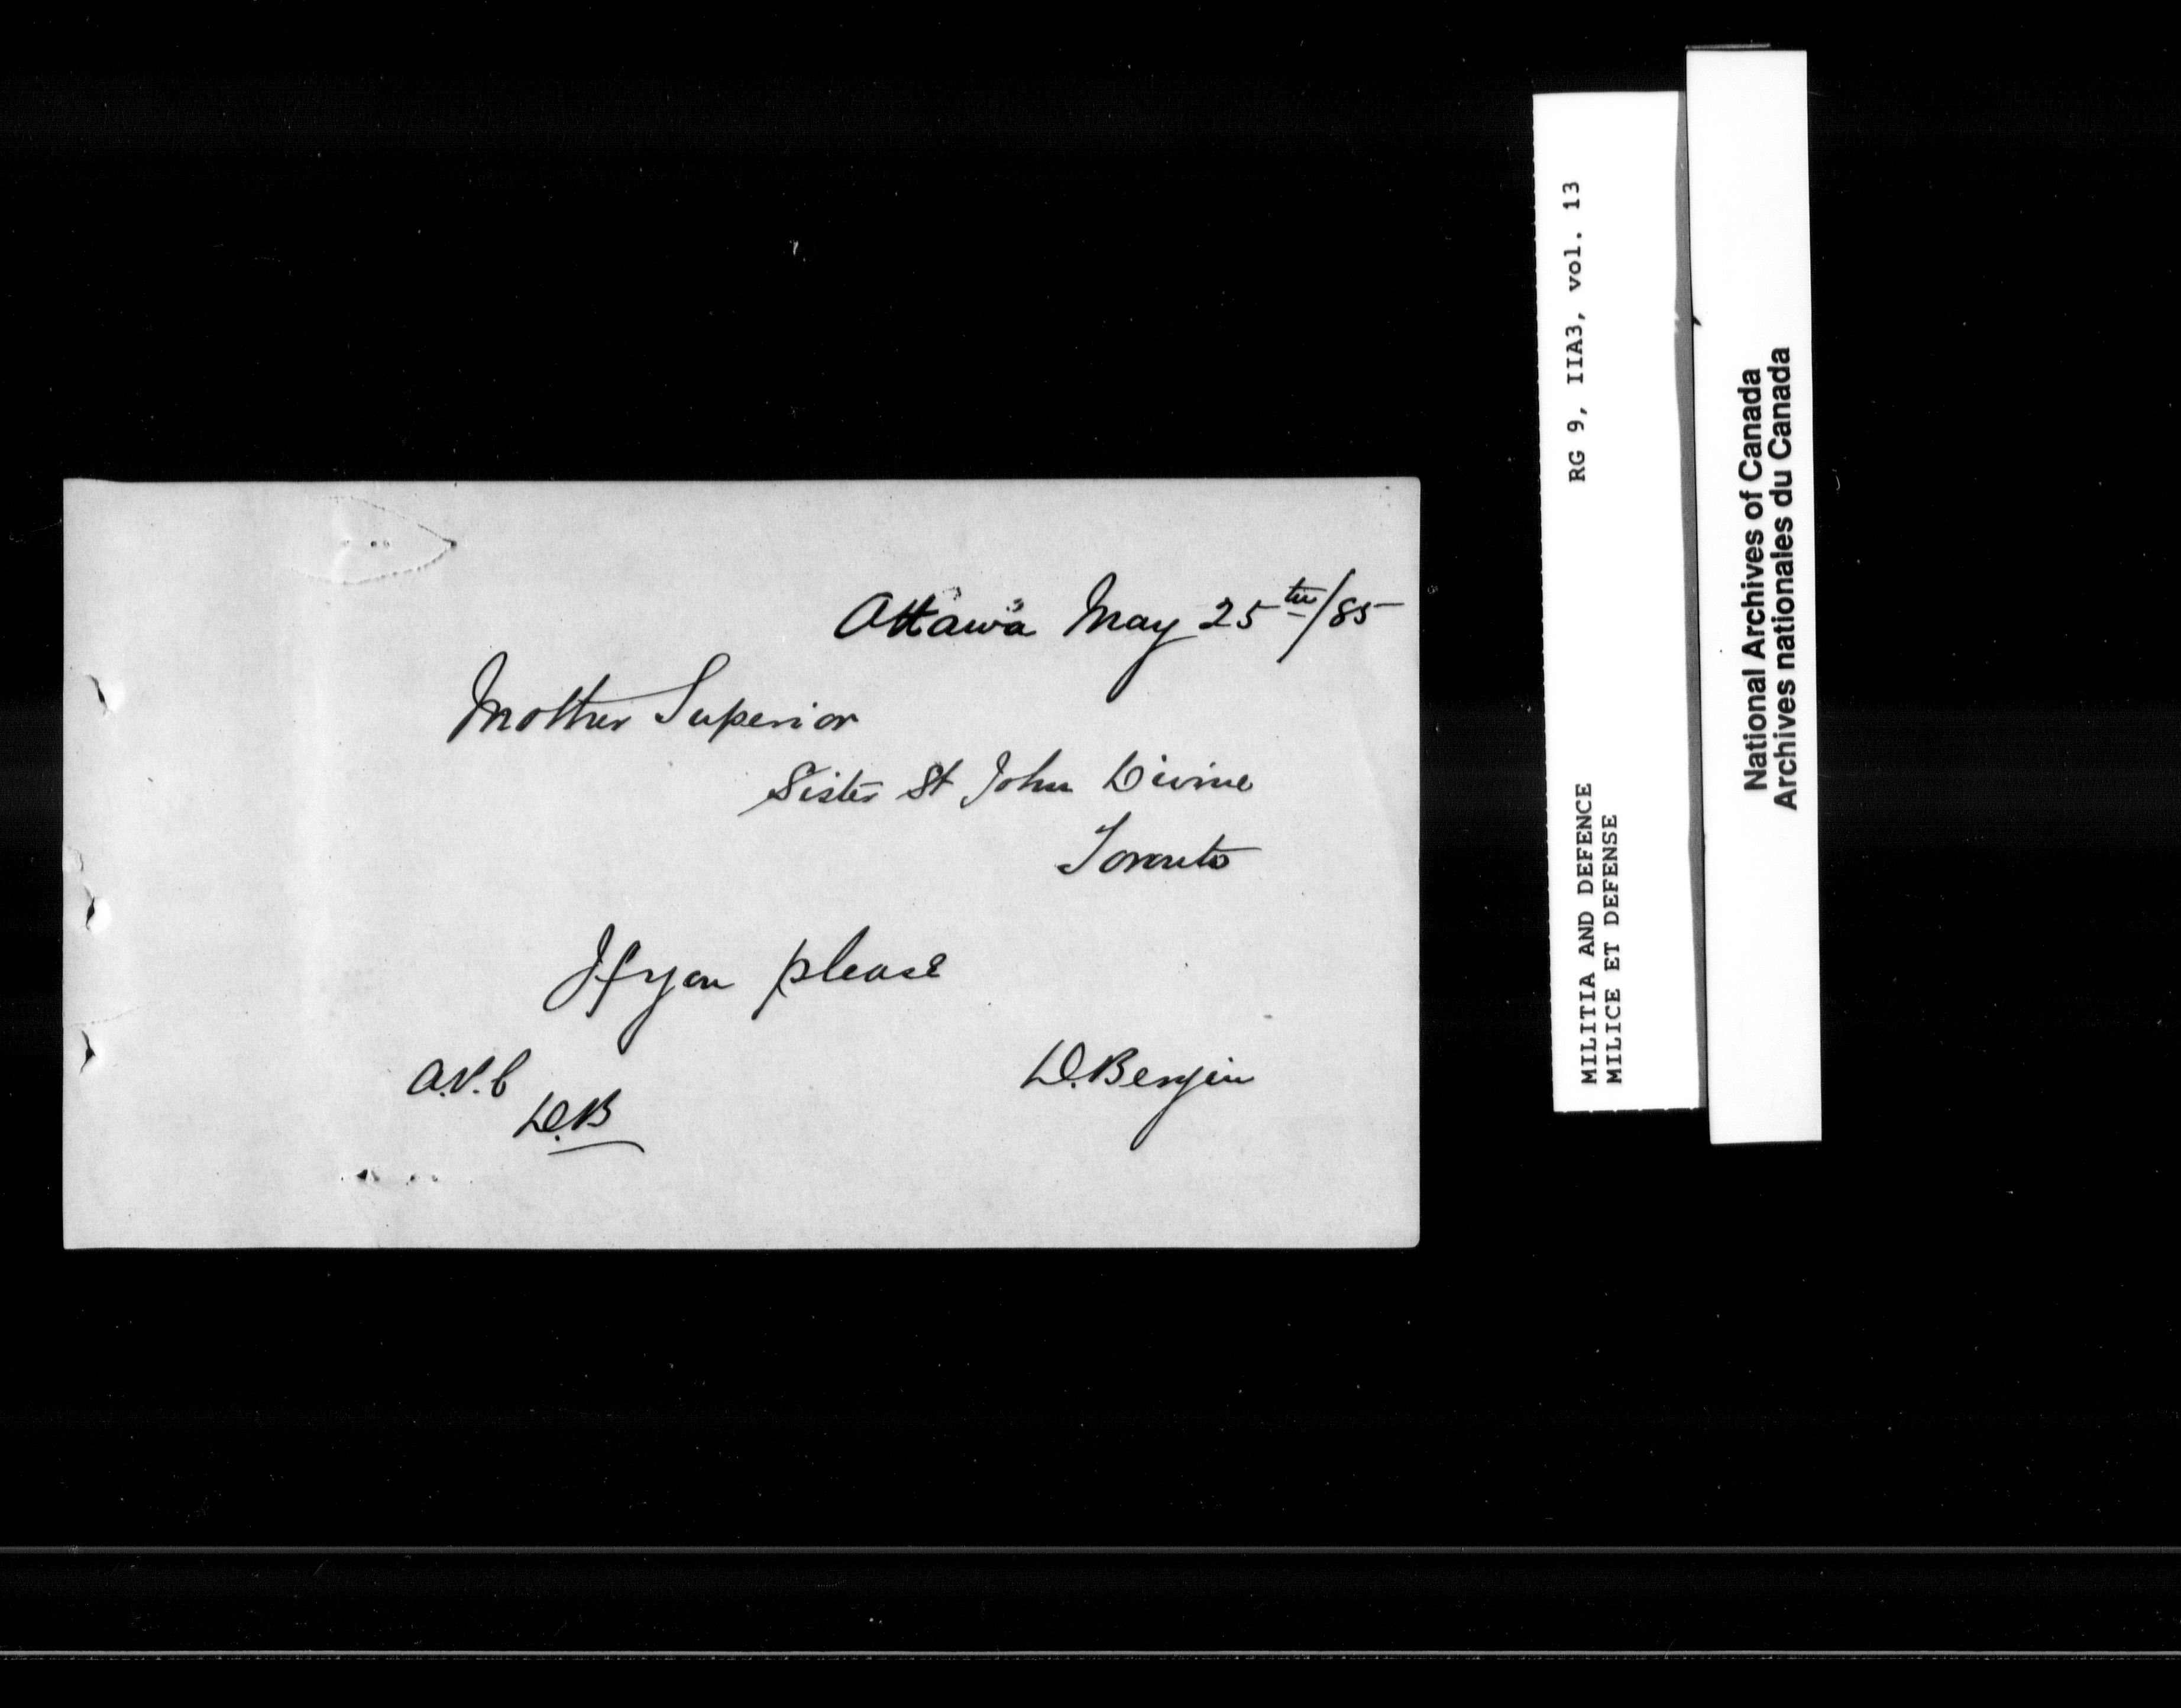 Ottawa May 25th/85
Mother Superior
Sister St John Divine
Toronto
If you please
D. Bergin
A.V.C
D.B
RG 9, IIA3, vol. 13
MILITIA AND DEFENCE
MILICE ET DEFENSE
National Archives of Canada
Archives nationales du Canada